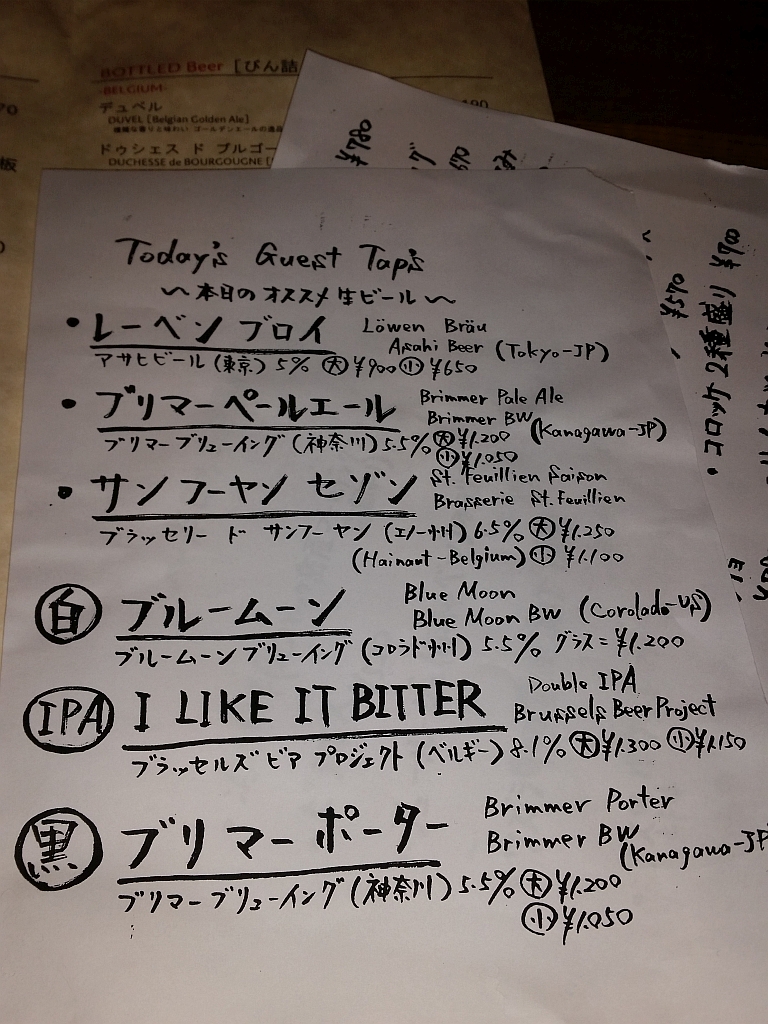 BOTTLED Beer [びん詰
-BELGIUM-
デュベル
DUVEL [Belgian Golden Ale]
ドゥシェス ド ブルゴー
DUCHESSE de BOURGOGNE [
¥780
¥570
コロッケ2種盛り ¥700
Today's Guest Tap's
～本日のオススメ生ビール～
・レーベンブロイ Löwen Bräu
Asahi Beer (Tokyo-JP)
アサヒビール (東京) 5% 大 ¥900 小 ¥650
・ブリマーペールエール Brimmer Pale Ale
Brimmer BW (Kanagawa-JP)
ブリマーブリューイング (神奈川) 5.5% 大 ¥1.200
小 ¥1.050
・サンフーヤン セゾン St. Feuillien Saison
Brasserie St. Feuillien
ブラッセリー ド サンフーヤン (エノー州) 6.5% 大 ¥1.250
(Hainaut-Belgium) 小 ¥1.100
白 ブルームーン Blue Moon
Blue Moon BW (Corolado-US)
ブルームーンブリューイング (コロラド州) 5.5% グラス=¥1.200
IPA I LIKE IT BITTER Double IPA
Brussels Beer Project
ブラッセルズ ビア プロジェクト (ベルギー) 8.1% 大 ¥1.300 小 ¥1.150
黒 ブリマーポーター Brimmer Porter
Brimmer BW
(Kanagawa-JP
ブリマーブリューイング (神奈川) 5.5% 大 ¥1.200
小 ¥1.050